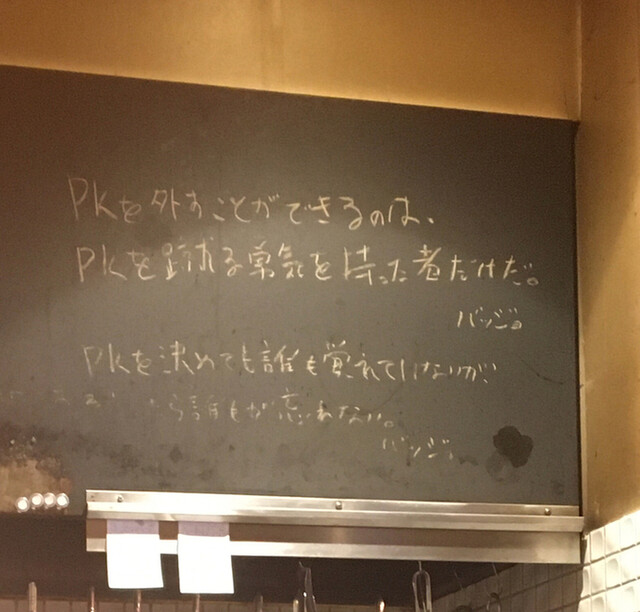 PKを外すことができるのは、
PKを蹴る勇気を持った者だけだ。
バッジョ
PKを決めても誰も覚えていないが、
ら誰もが忘れない。
バッジョ